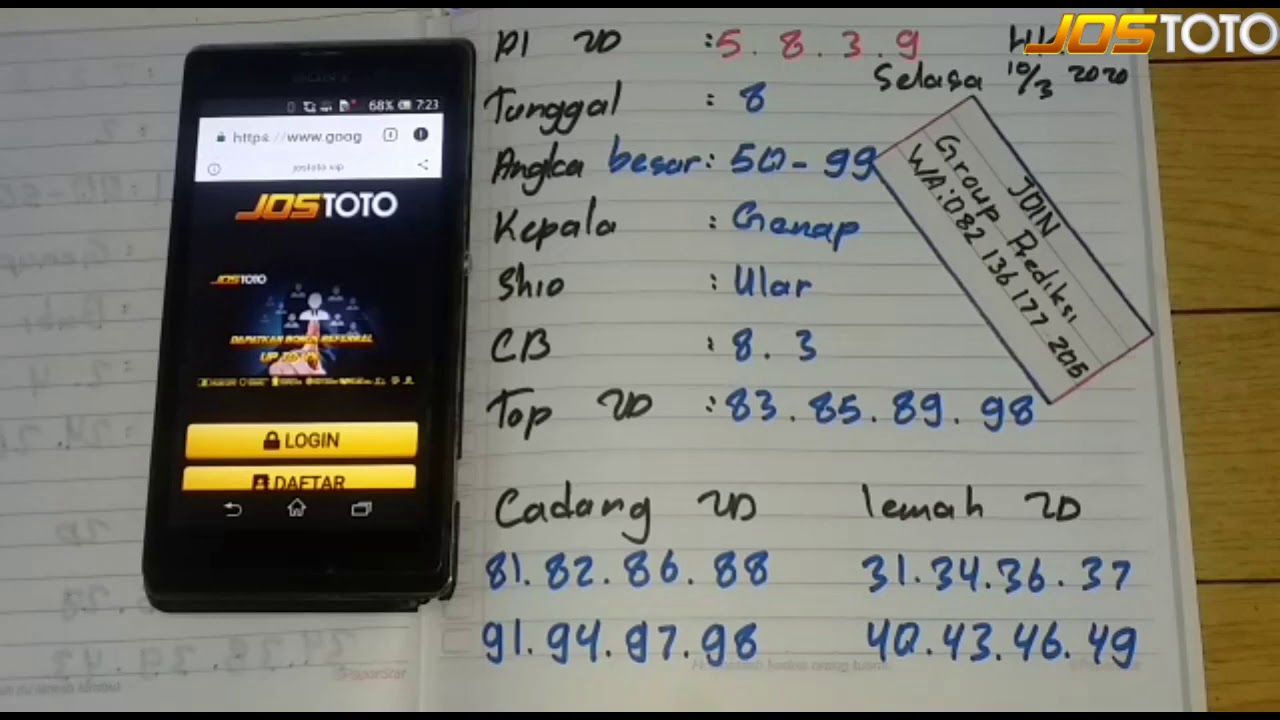 JOSTOTO
AI 2D : 5. 8. 3. 9
Selasa 10/3 2020
Tunggal : 8
Angka besar : 50 - 99
Kepala : Genap
Shio : Ular
CB : 8. 3
Top 2D : 83. 85. 89. 98
JOIN
Group Prediksi
WA: 082 136 177 205
Cadang 2D
81. 82. 86. 88
91. 94. 97. 98
lemah 2D
31. 34. 36. 37
40. 43. 46. 49
SONY
68% 7:23
https://www.goog
jostoto.vip
JOSTOTO
JOSTOTO
DAPATKAN BONUS REFERRAL
LOGIN
DAFTAR
PaperStar